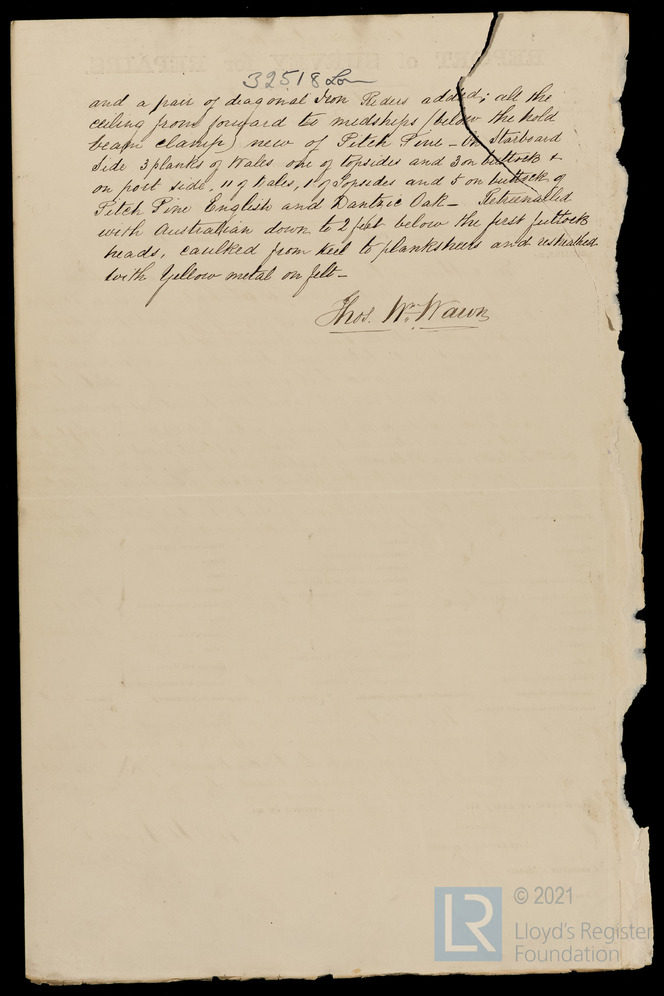 32518 Lon
and a pair of diagonal Iron Riders added; all the
ceiling from forward to midships (below the hold
beam clamp) new of Pitch Pine – On Starboard
Side 3 planks of Wales one of topsides and 3 on buttock &
on port side, 11 of Wales, 1 of Topsides and 5 on buttock of
Pitch Pine English and Dantzic Oak – Retreenailed
with Australian down to 2 feet below the first futtock
heads, caulked from keel to planksheers and resheathed
with Yellow metal on felt –
Thos. Wm. Wawn
© 2021
LR
Lloyd's Register
Foundation